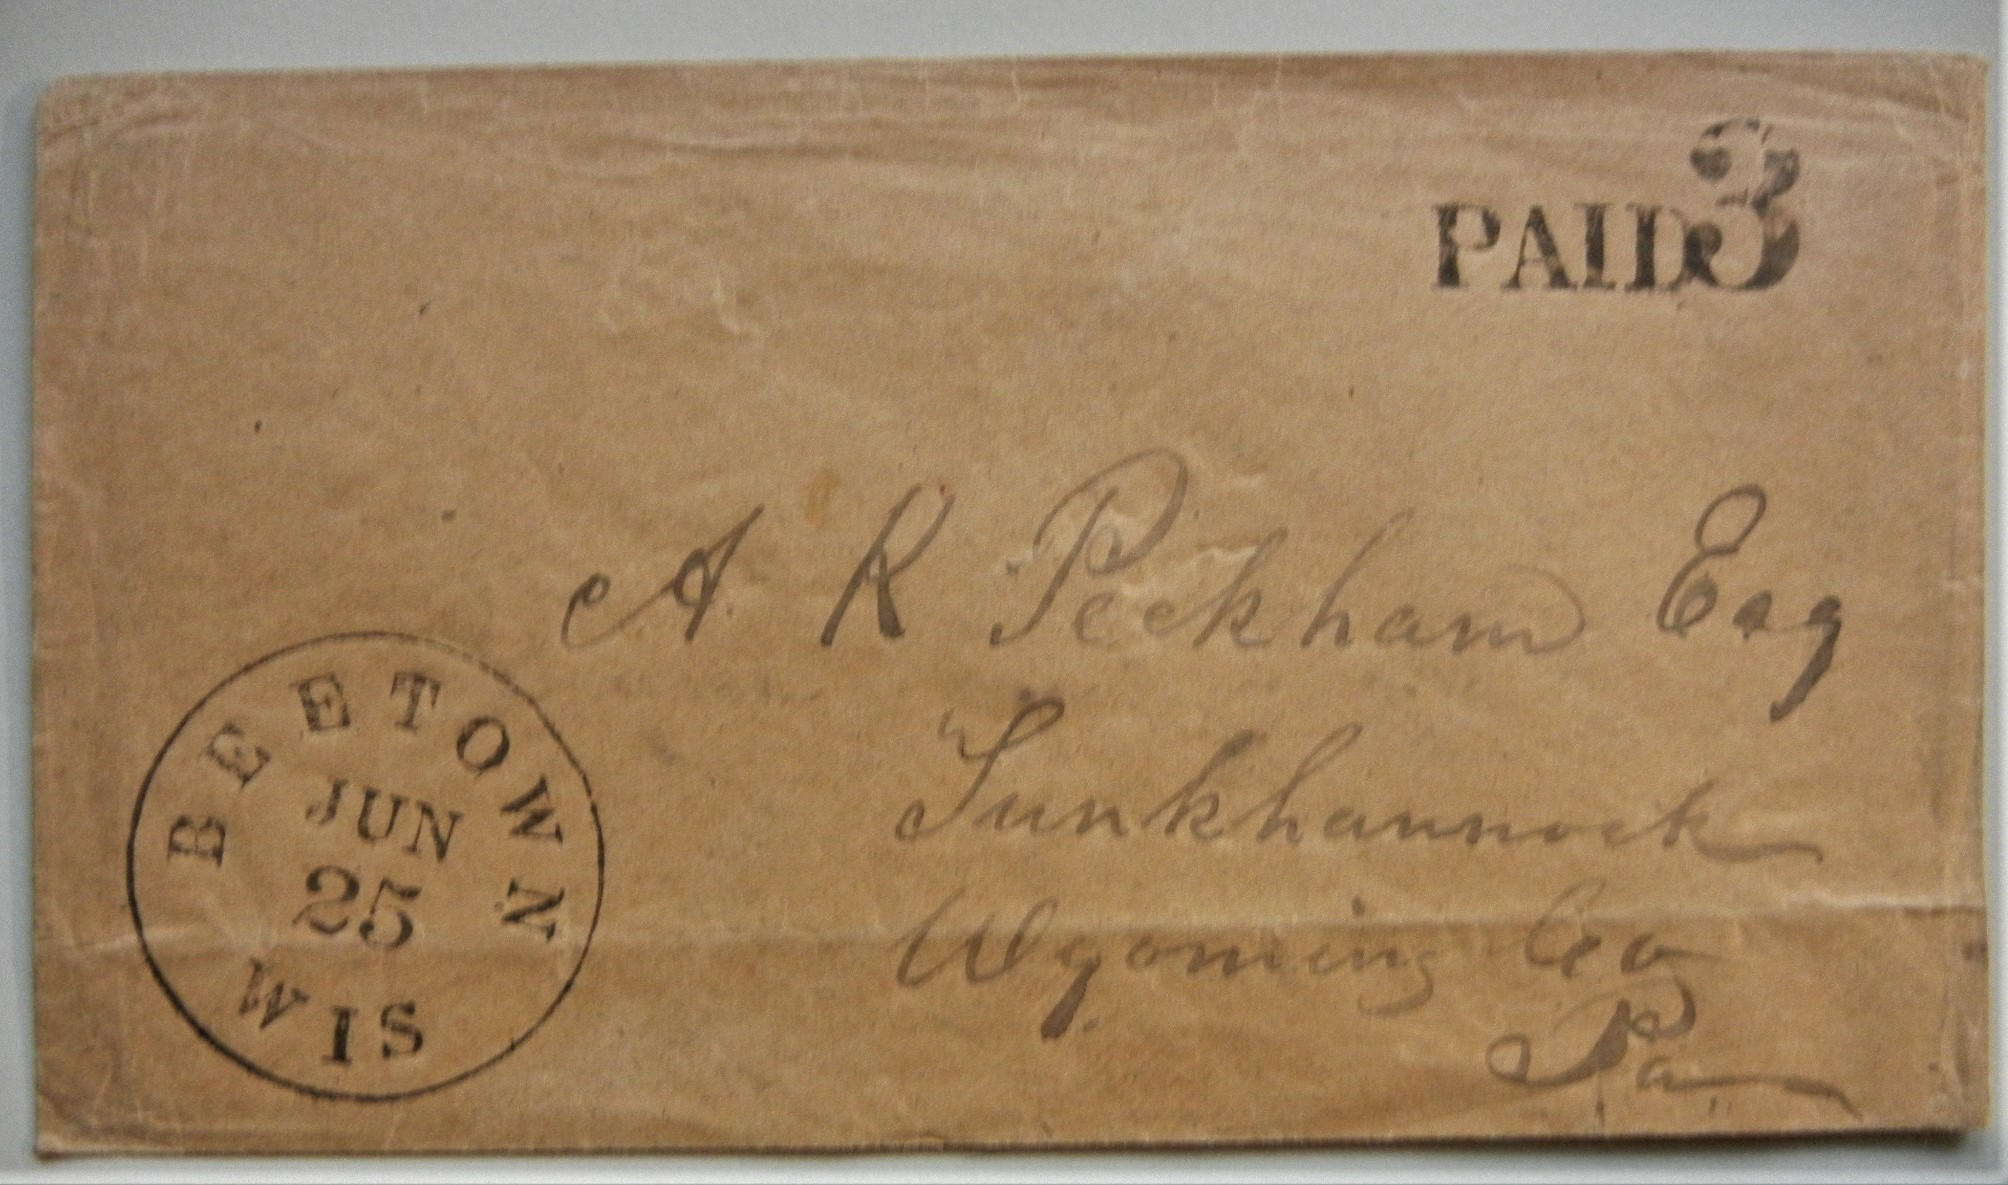 PAID 3
A R Peckham Esq
Tunkhannock
Wyoming Co
Pa
BEETOWN
JUN
25
WIS